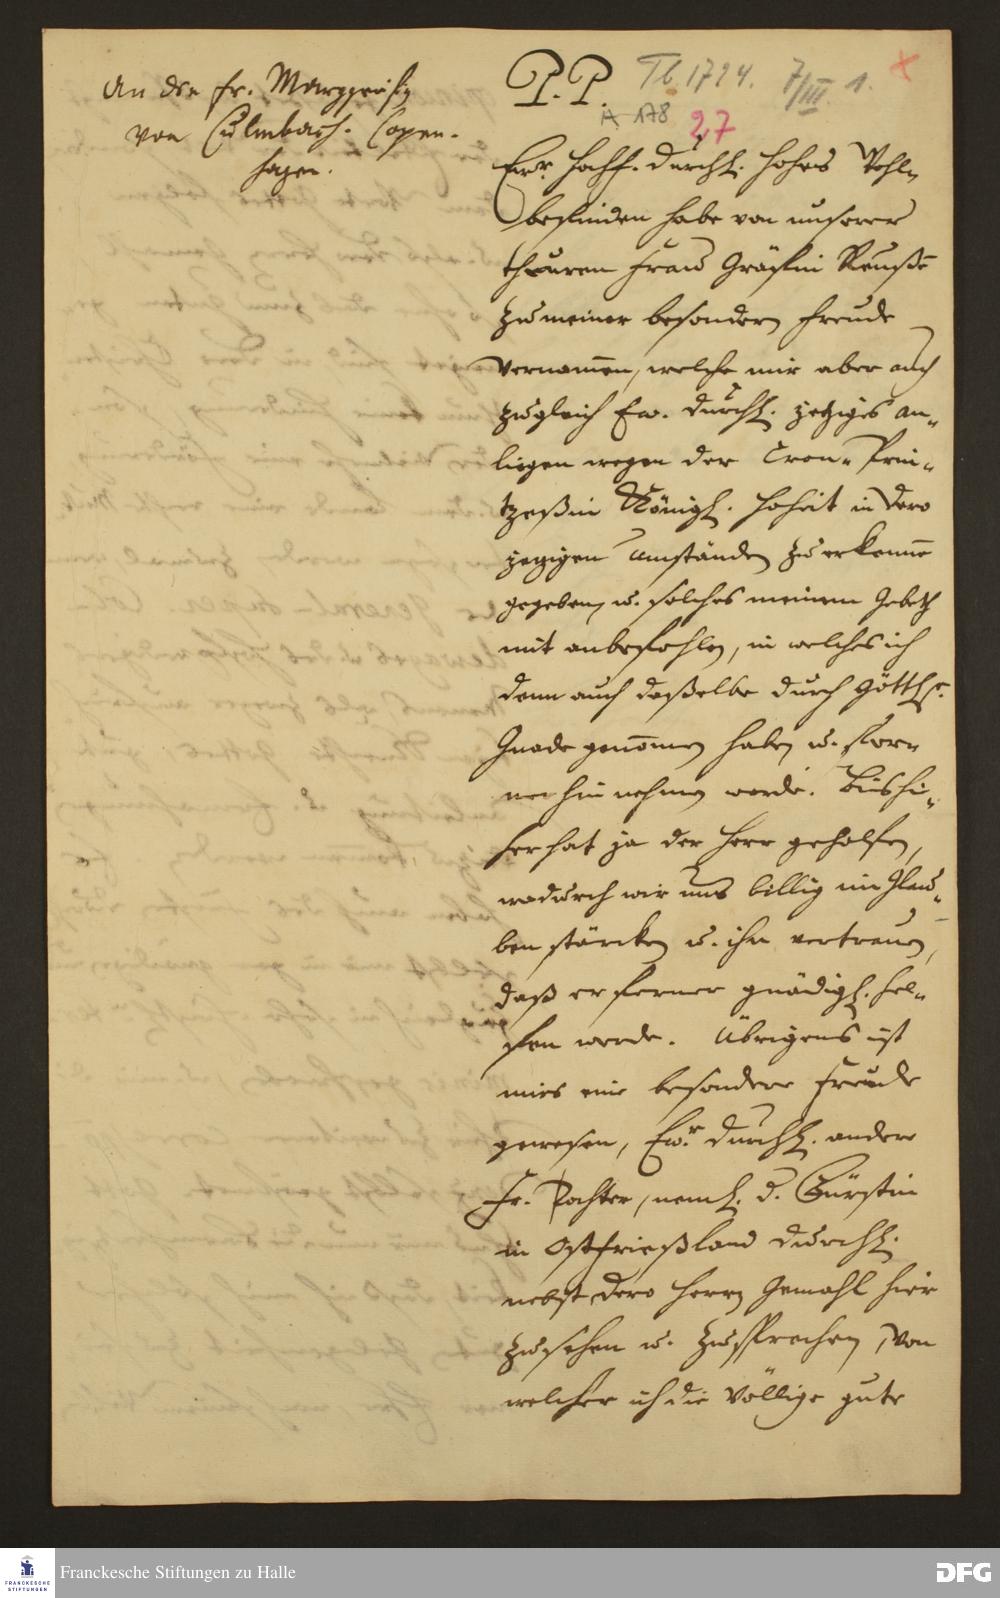 An die Fr. Marggräfin
von Culmbach. Copen-
hagen.
P. P.
Tb. 1724. 7/III 1.
A 178
27
Ew. Hochf. Durchl. hohes Wohl-
befinden habe von unserer
theuren Frau Gräfin Reußen
zu meiner besondern Freude
vernomen, welche mir aber auch
zugleich Ew. Durchl. jetziges An-
liegen wegen der Cron-Prin-
tzeßin Königl. Hoheit in Dero
jetzigen Umständen zu erkennen
gegeben, u. solches meinem Gebeth
mit anbefohlen, in welches ich
denn auch daßelbe durch Göttl.
Gnade genomen habe, u. fer-
ner hin nehmen werde. Bishi-
her hat ja der Herr geholfen,
wodurch wir uns billig im Glau-
ben stärcken u. ihm vertrauen,
daß er ferner gnädigl. hel-
fen werde. Übrigens ist
mirs eine besondere Freude
gewesen, Ew. Durchl. andere
Fr. Tochter, neml. d. Fürstin
in Ostfrießland Durchl.
nebst Dero Herrn Gemahl hier
zu sehen u. zu sprechen, von
welcher ich die völlige gute
Franckesche Stiftungen zu Halle
FRANCKESCHE
STIFTUNGEN
DFG